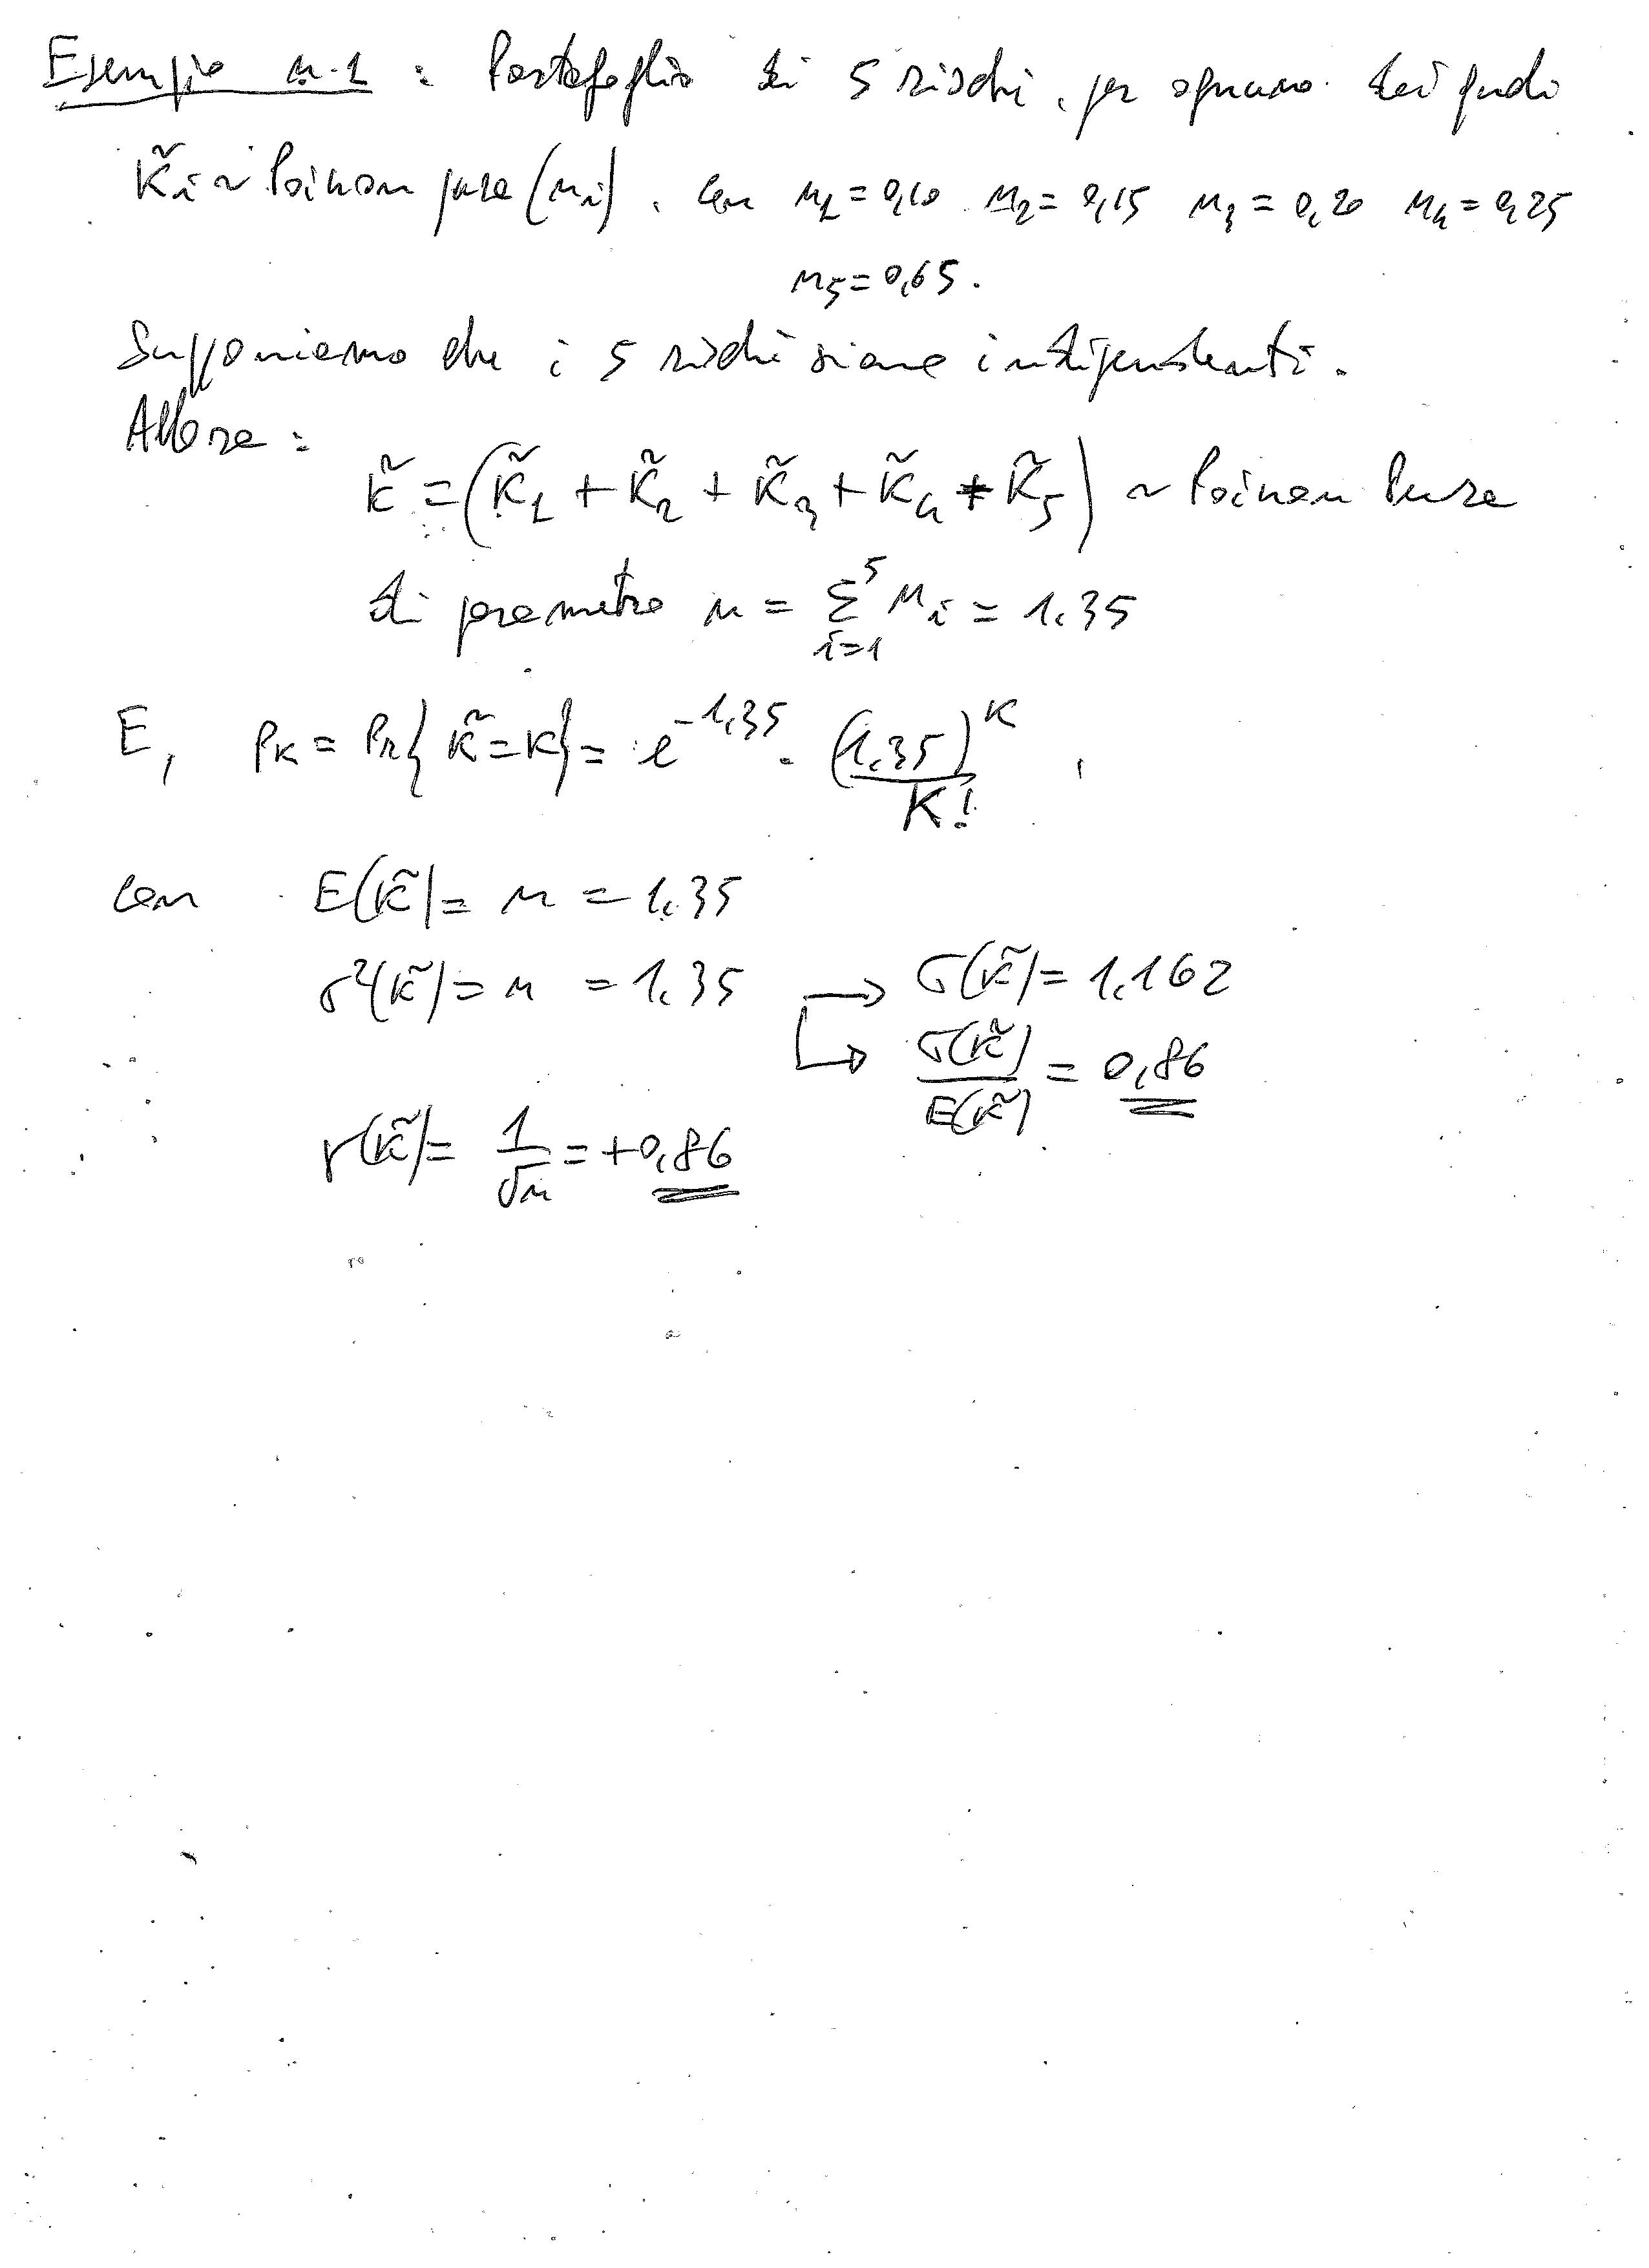 Esempio n.1 : Portafoglio di 5 rischi, per ognuno dei quali
K̃i ~ Poisson pura (ni), con n1 = 0,10 n2 = 0,15 n3 = 0,20 n4 = 0,25
n5 = 0,65.
Supponiamo che i 5 rischi siano indipendenti.
Allora :
K̃ = (K̃1 + K̃2 + K̃3 + K̃4 + K̃5) ~ Poisson Pura
di parametro n = Σ_{i=1}^{5} ni = 1,35
E, PK = Pr{ K̃ = K } = e^{-1,35} · (1,35)^K / K! ,
con E(K̃) = n = 1,35
σ²(K̃) = n = 1,35 → σ(K̃) = 1,162
↳ σ(K̃) / E(K̃) = 0,86
γ(K̃) = 1/√n = +0,86